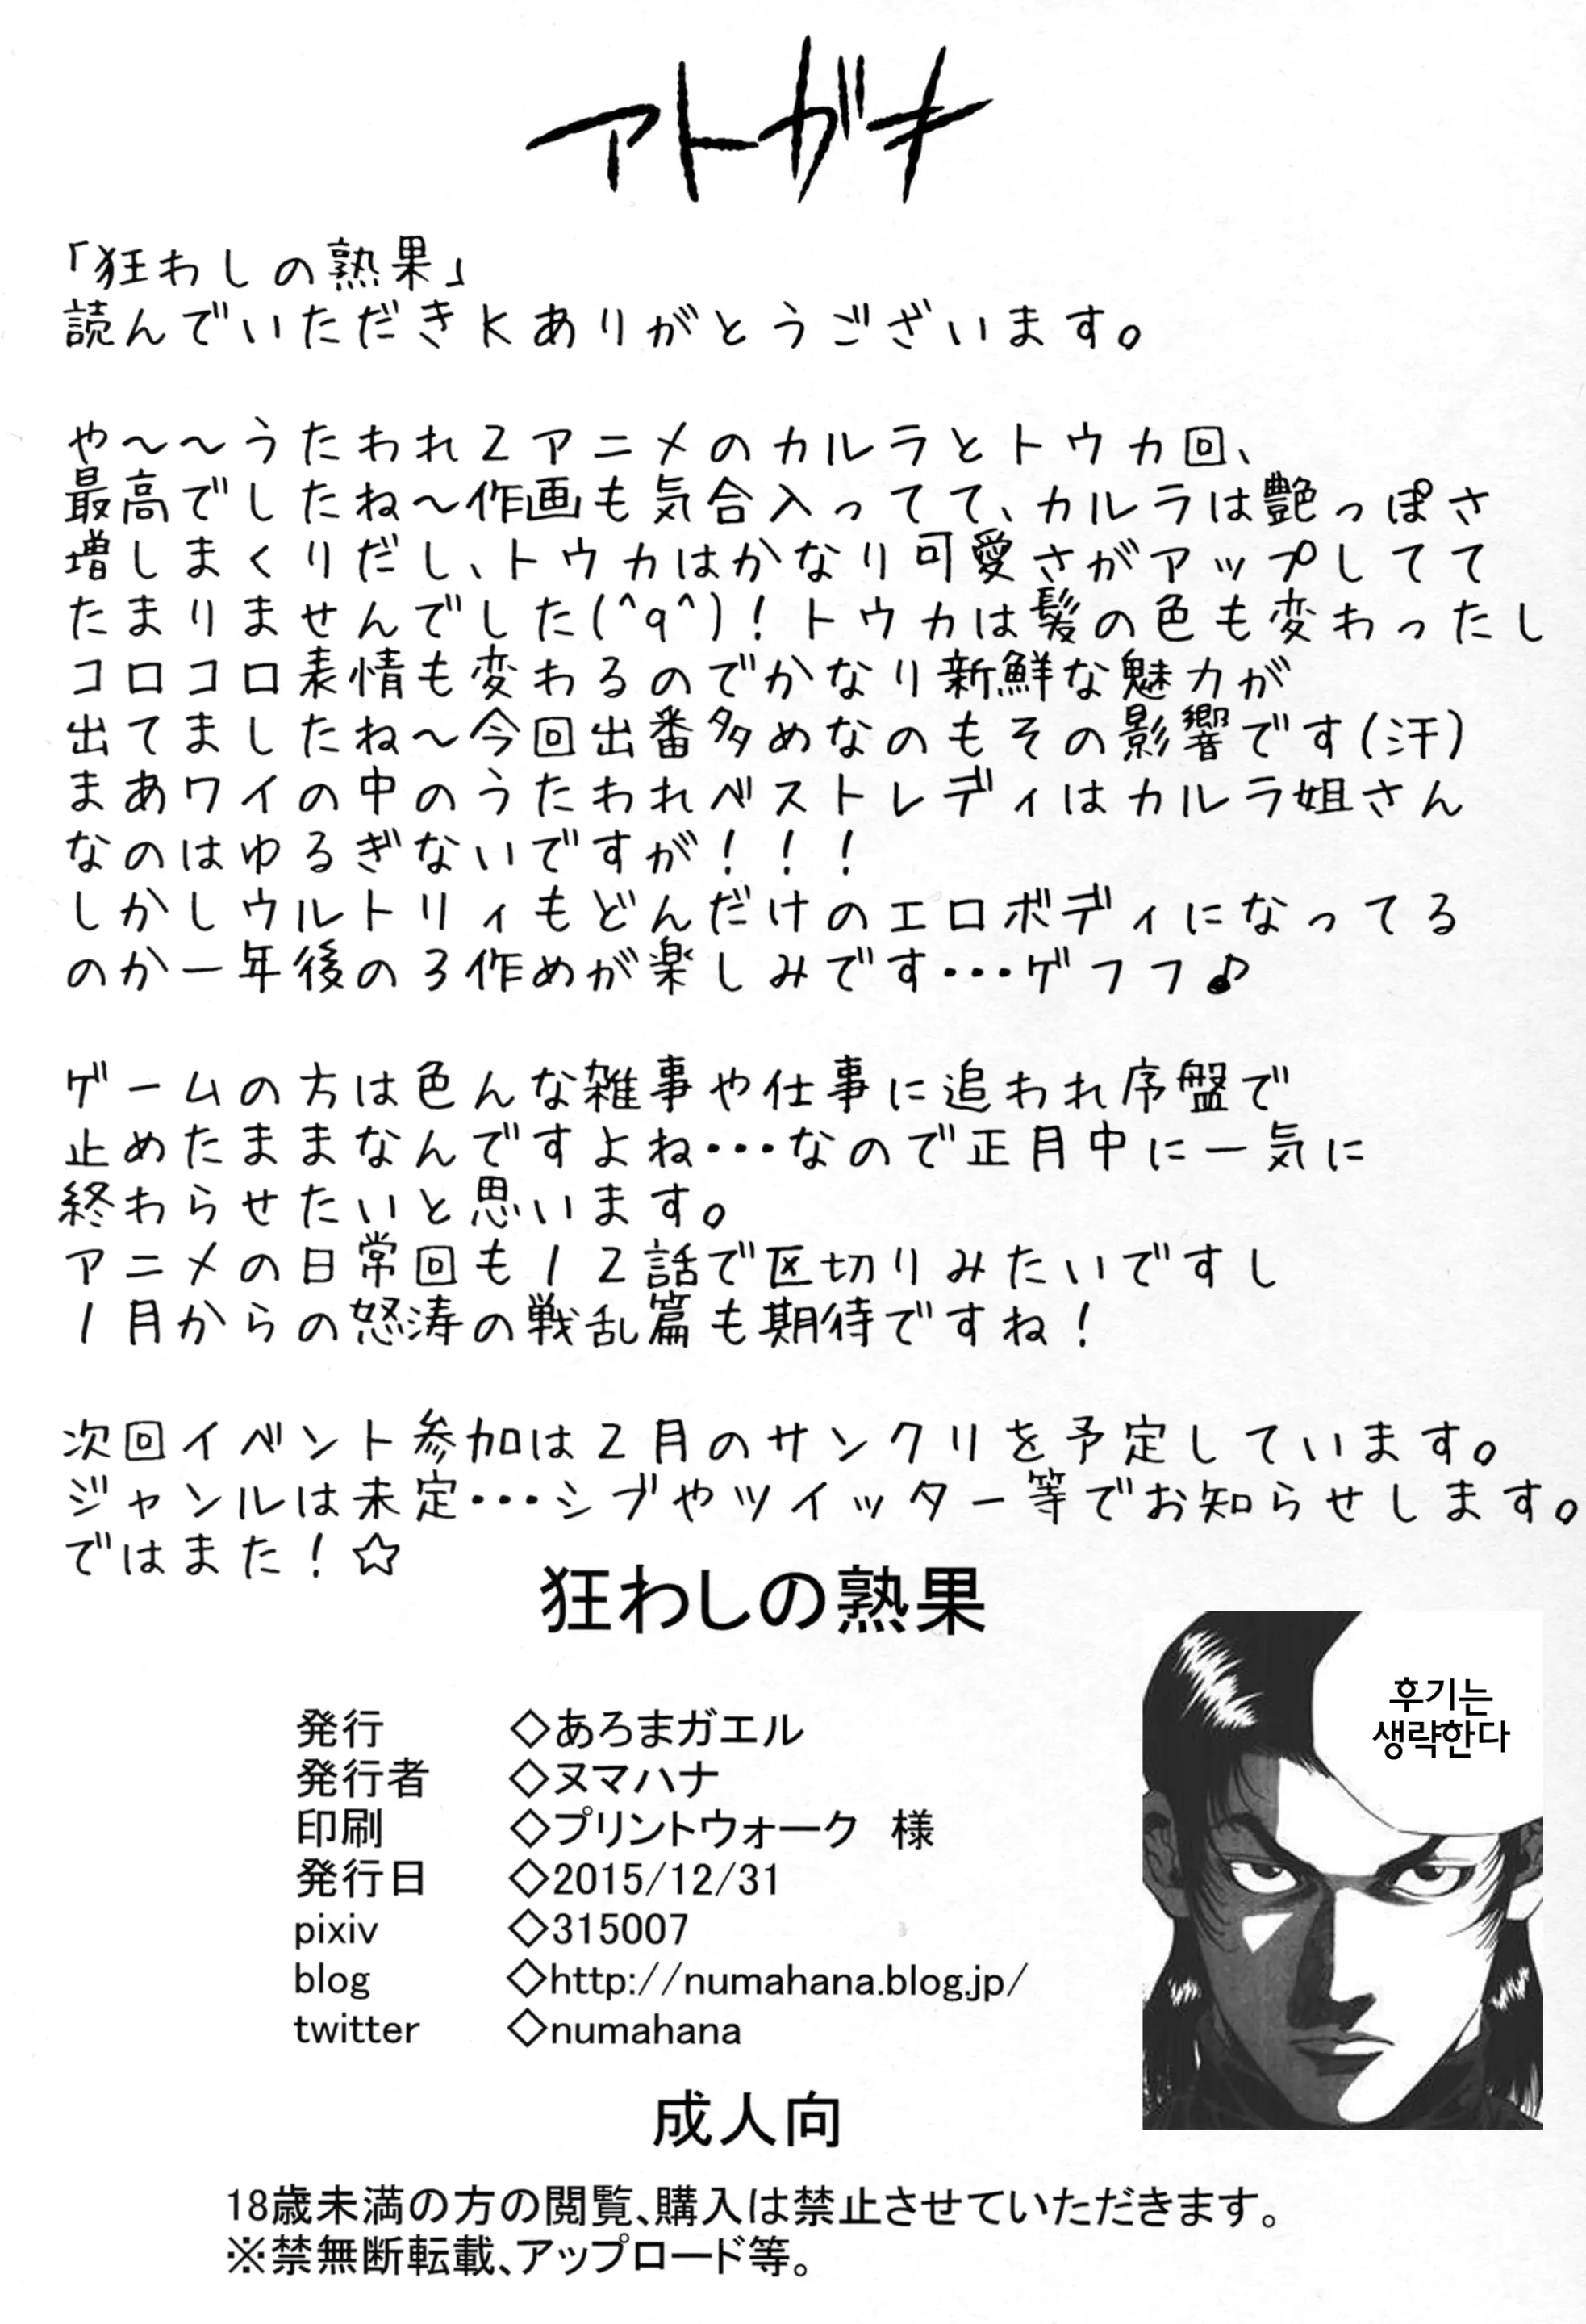 アトガキ
「狂わしの熟果」
読んでいただきKありがとうございます。
や～～うたわれ2アニメのカルラとトウカ回、
最高でしたね～作画も気合入ってて、カルラは艶っぽさ
増しまくりだし、トウカはかなり可愛さがアップしてて
たまりませんでした(^q^)！トウカは髪の色も変わったし
コロコロ表情も変わるのでかなり新鮮な魅力が
出てましたね～今回出番多めなのもその影響です(汗)
まあワイの中のうたわれベストレディはカルラ姐さん
なのはゆるぎないですが！！！
しかしウルトリィもどんだけのエロボディになってる
のか一年後の3作めが楽しみです・・・ゲフフ♪
ゲームの方は色んな雑事や仕事に追われ序盤で
止めたままなんですよね・・・なので正月中に一気に
終わらせたいと思います。
アニメの日常回も12話で区切りみたいですし
1月からの怒涛の戦乱篇も期待ですね！
次回イベント参加は2月のサンクリを予定しています。
ジャンルは未定・・・シブやツイッター等でお知らせします。
ではまた！☆
狂わしの熟果
후기는
생략한다
発行 ◇あろまガエル
発行者 ◇ヌマハナ
印刷 ◇プリントウォーク 様
発行日 ◇2015/12/31
pixiv ◇315007
blog ◇http://numahana.blog.jp/
twitter ◇numahana
成人向
18歳未満の方の閲覧、購入は禁止させていただきます。
※禁無断転載、アップロード等。